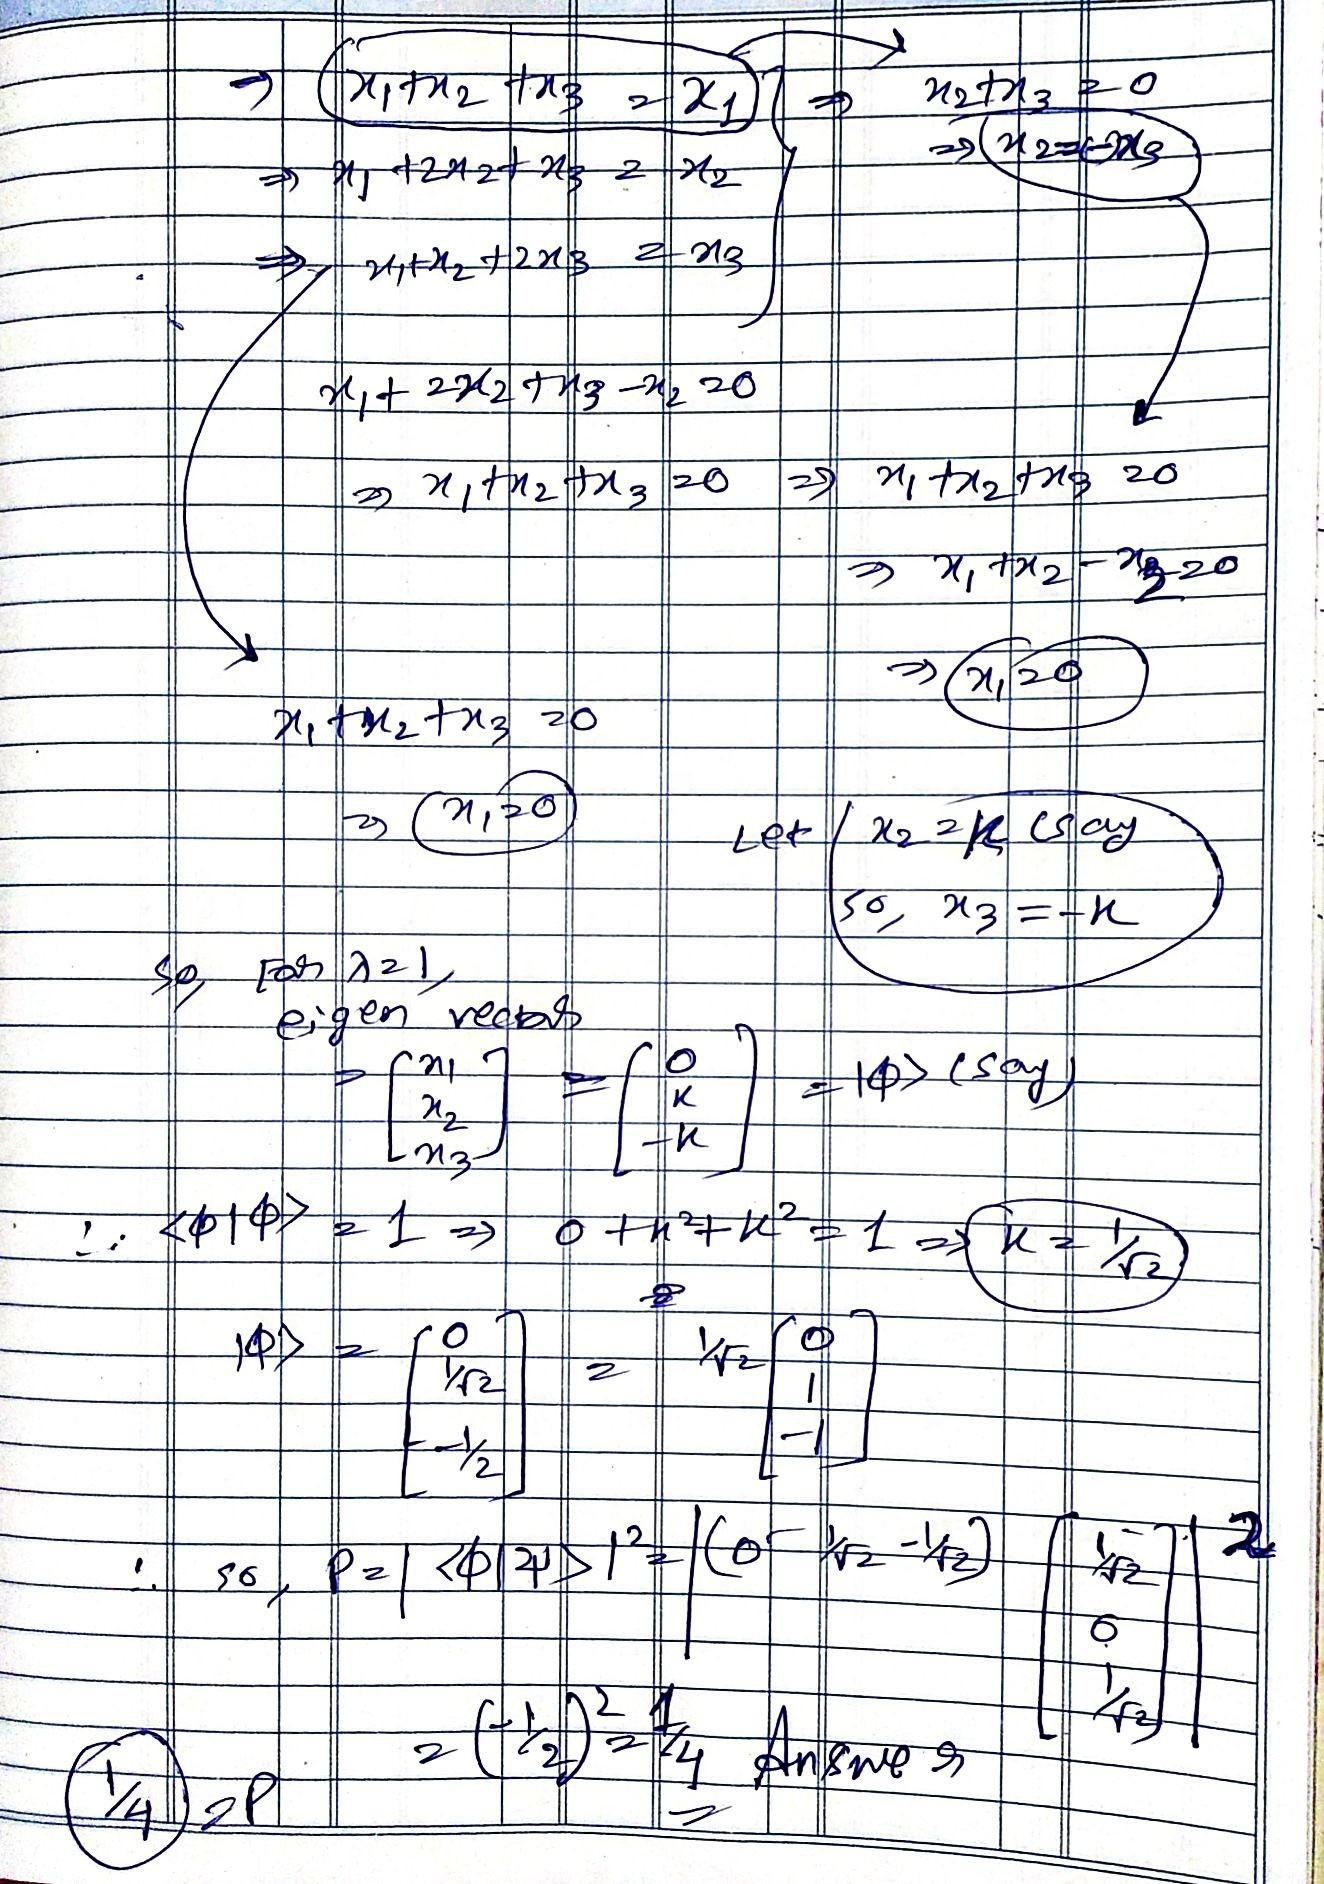 ⇒ x₁+x₂+x₃ = x₁ ⇒ x₂+x₃ = 0
⇒ x₁+2x₂+x₃ = x₂ ⇒ x₂=-x₃
⇒ x₁+x₂+2x₃ = x₃
x₁+2x₂+x₃-x₂=0
⇒ x₁+x₂+x₃=0 ⇒ x₁+x₂+x₃=0
⇒ x₁+x₂-x₂=0
⇒ x₁=0
x₁+x₂+x₃=0
⇒ x₁=0
Let x₂=k (say
so, x₃=-k
so, For λ=1,
eigen vectors
= [x₁ x₂ x₃] = [0 k -k] = |ϕ> (say)
∴ <ϕ|ϕ> = 1 ⇒ 0+k²+k²=1 ⇒ k=1/√2
|ϕ> = [0 1/√2 -1/2] = 1/√2 [0 1 -1]
∴ so, P=|<ϕ|ψ>|²=|(0 1/√2 -1/√2) [1/√2 0 1/√2]|²
= (-1/2)² = 1/4 Answer
1/4 = P